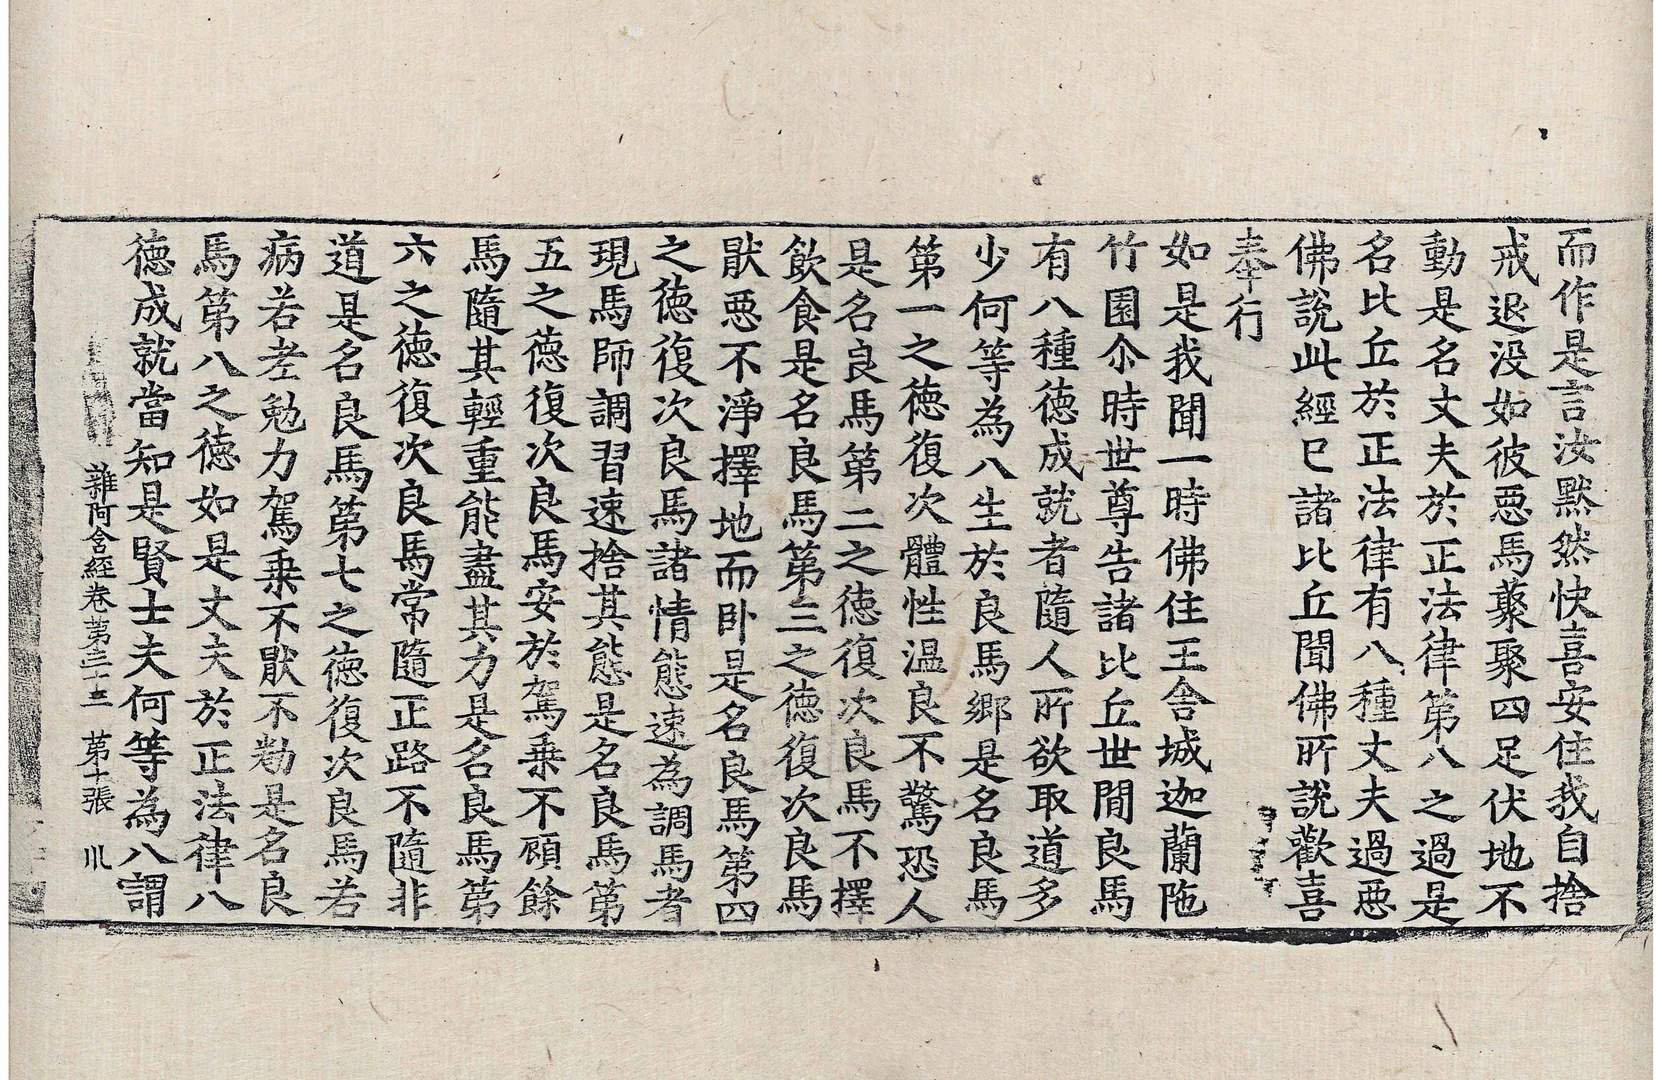 而作是言汝默然快喜安住我自捨
戒退没如彼悪馬蔾聚四足伏地不
動是名丈夫於正法律第八之過是
名比丘於正法律有八種丈夫過悪
佛說此經已諸比丘聞佛所說歡喜
奉行
如是我聞一時佛住王舍城迦蘭陁
竹園尒時世尊告諸比丘世閒良馬
有八種徳成就者隨人所欲取道多
少何等為八生於良馬鄉是名良馬
第一之徳復次體性温良不驚恐人
是名良馬第二之徳復次良馬不擇
飲食是名良馬第三之徳復次良馬
猒悪不淨擇地而卧是名良馬第四
之徳復次良馬諸情態速為調馬者
現馬師調習速捨其態是名良馬第
五之徳復次良馬安於駕乗不顧餘
馬隨其輕重能盡其力是名良馬第
六之徳復次良馬常隨正路不隨非
道是名良馬第七之徳復次良馬若
病若老勉力駕乗不猒不勌是名良
馬第八之徳如是丈夫於正法律八
徳成就當知是賢士夫何等為八謂
雜阿含經卷第三十三 第十張 川